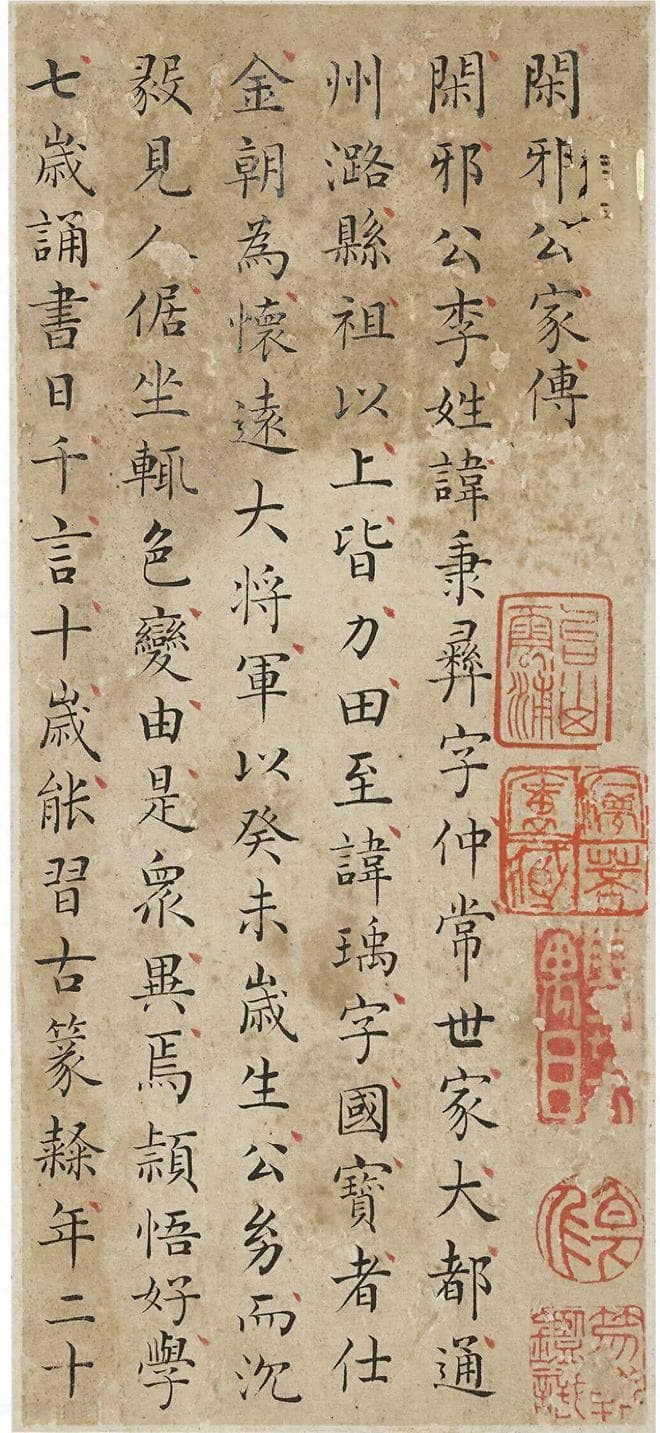 閑邪公家傳
閑邪公李姓諱秉彝字仲常世家大都通
州潞縣祖以上皆力田至諱瑀字國寶者仕
金朝為懷遠大将軍以癸未歲生公幼而沉
毅見人倨坐輒色變由是衆異焉穎悟好學
七歲誦書日千言十歲能習古篆隸年二十